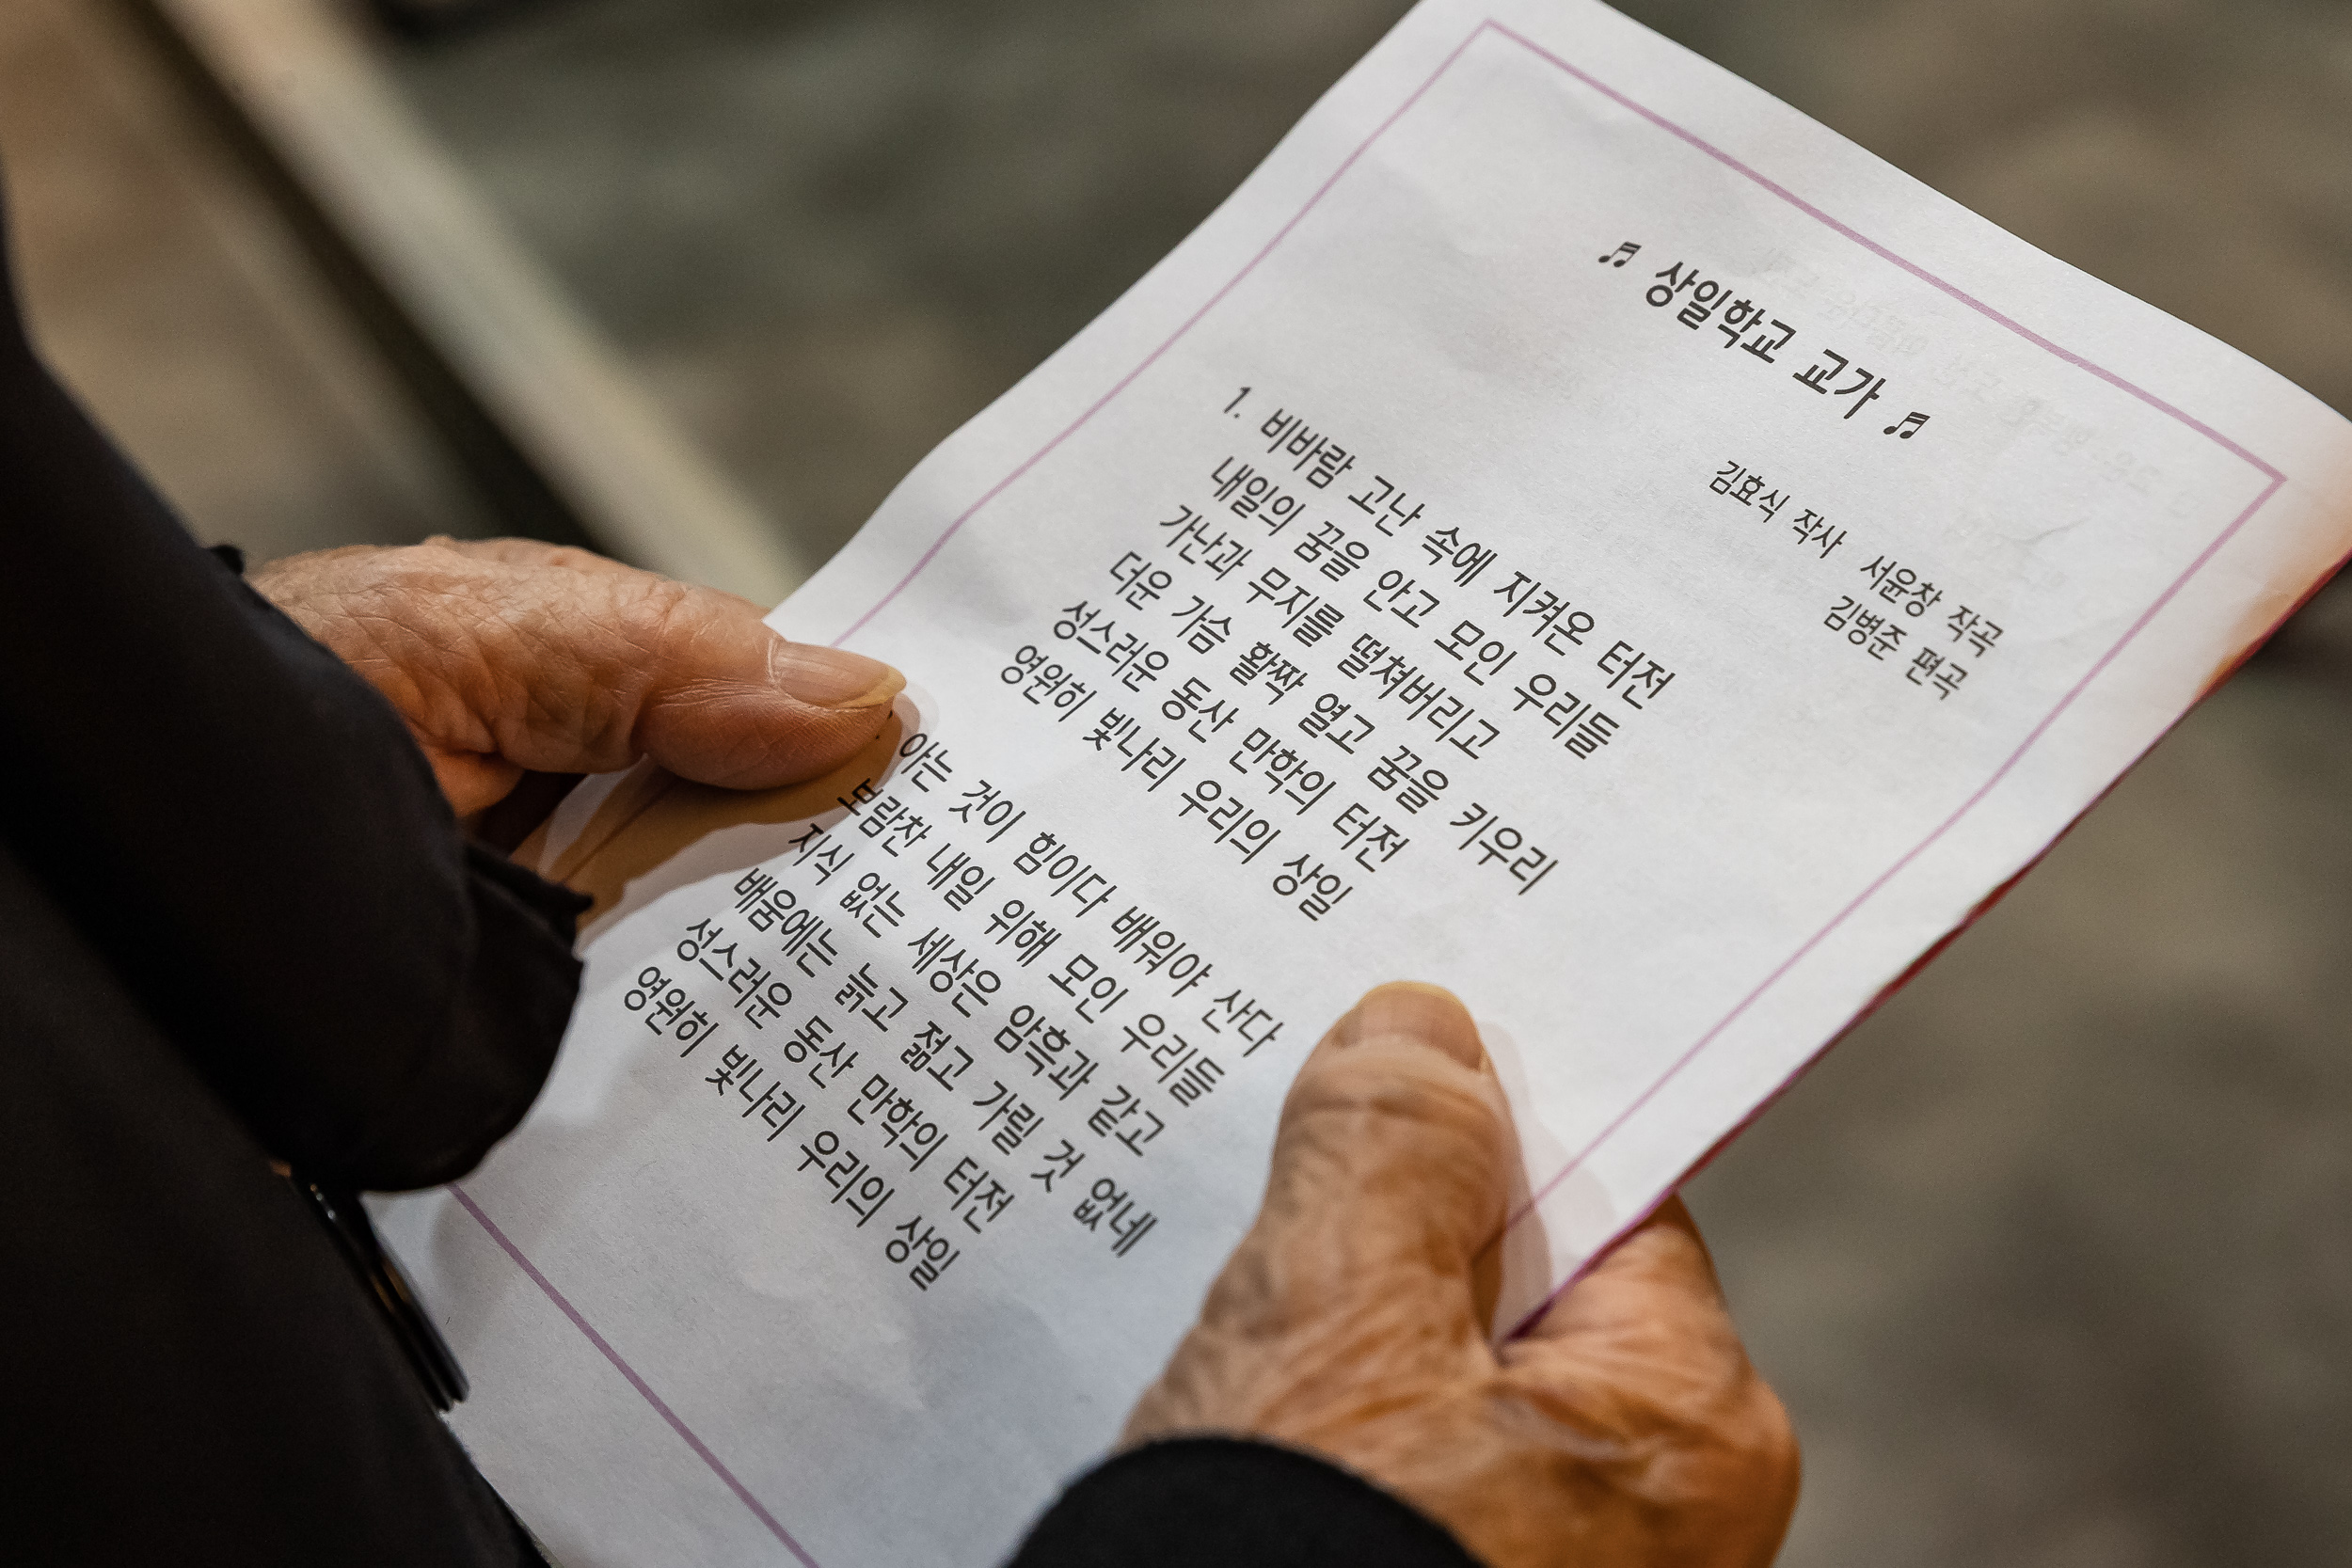 ♬ 상일학교 교가 ♬
김효식 작사 서윤창 작곡
김병준 편곡
1. 비바람 고난 속에 지켜온 터전
내일의 꿈을 안고 모인 우리들
가난과 무지를 떨쳐버리고
더운 가슴 활짝 열고 꿈을 키우리
성스러운 동산 만학의 터전
영원히 빛나리 우리의 상일
아는 것이 힘이다 배워야 산다
보람찬 내일 위해 모인 우리들
지식 없는 세상은 암흑과 같고
배움에는 늙고 젊고 가릴 것 없네
성스러운 동산 만학의 터전
영원히 빛나리 우리의 상일